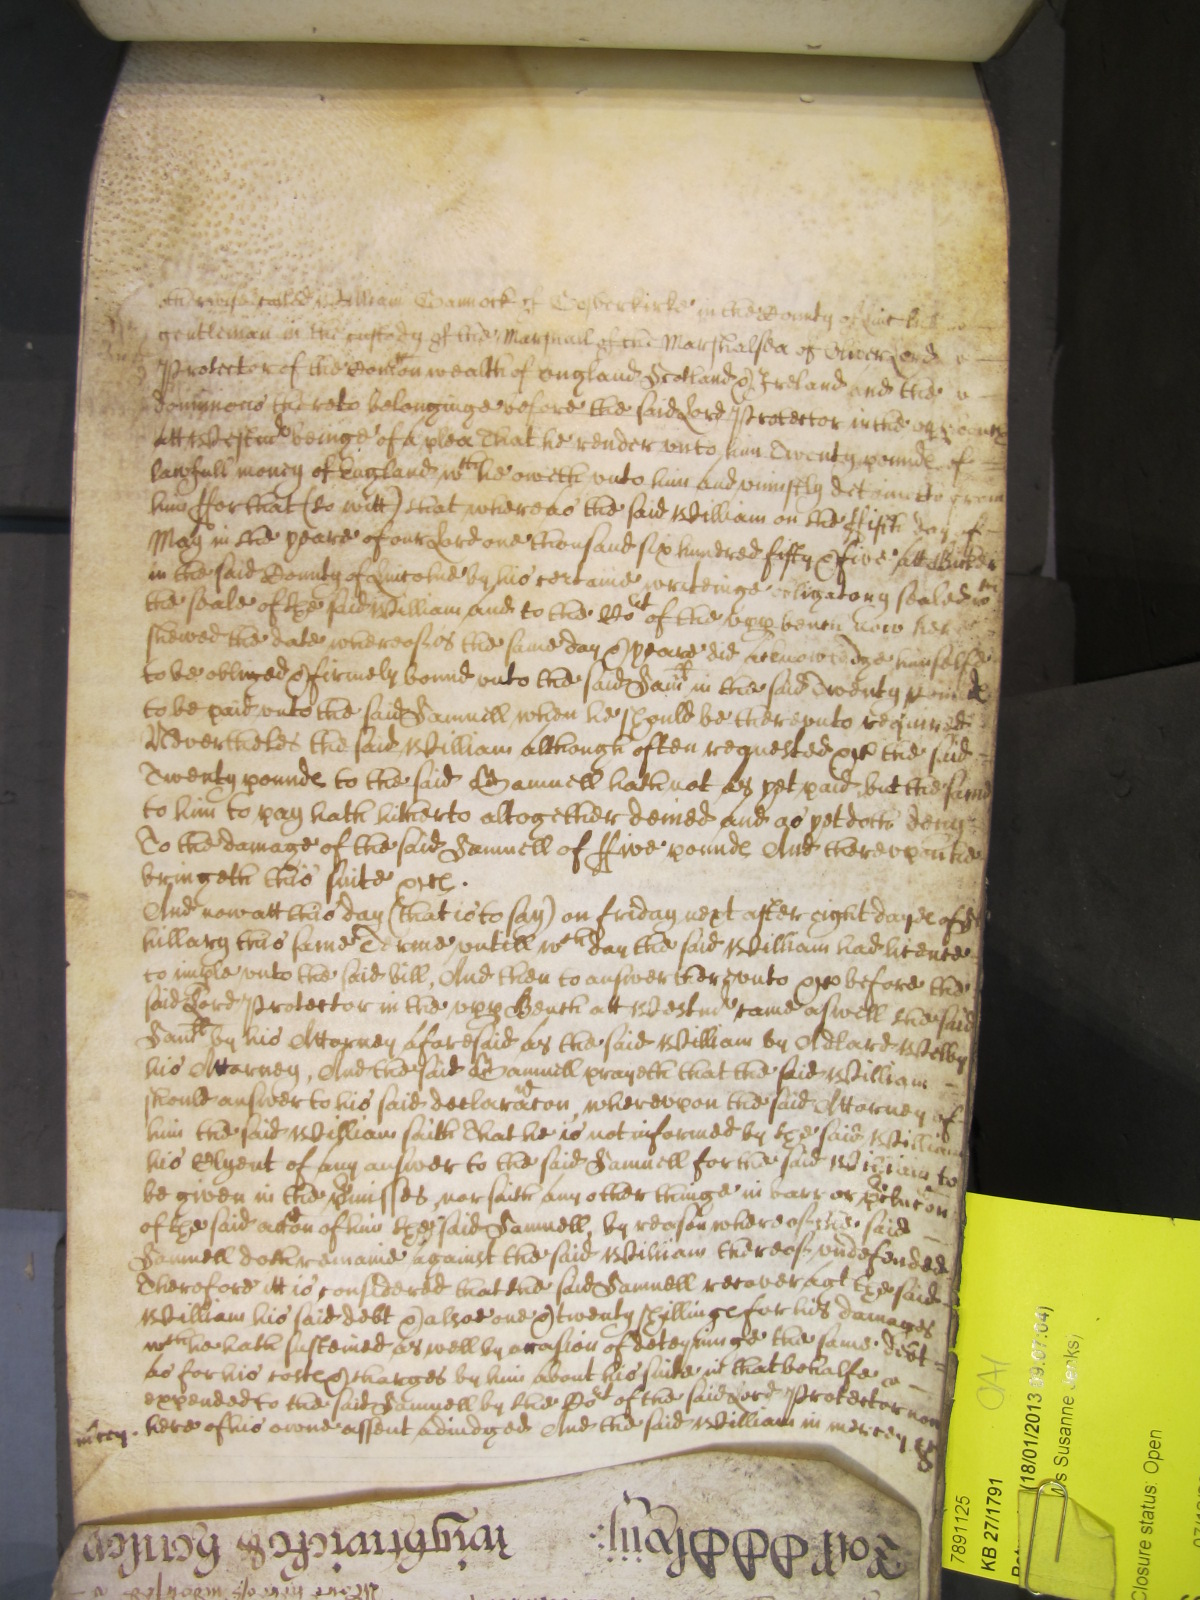 otherwise called William Gannock of in the County of
gentleman in the custody of the Marshall of the Marshalsea of Oliver Lord
Protector of the Comon wealth of England Scotland & Ireland and the
dominions thereto belonginge before the said Lord Protector in the upp bench
att Westmr beinge of a plea That he render unto him Twenty pounds of
lawfull money of England wch he oweth unto him and uniustly deteineth from
him ffor that (to witt) that whereas the said William on the fifth day of
May in the yeare of our Lord one thousand six hundred fifty & five att
in the said County of Lincolne by his certaine writeinge obligatory sealed wth
the seale of the said William and to the Cort of the upp bench now here
shewed the date whereof is the same day & yeare did acknowledge himselfe
to be obliged & firmely bound unto the said Samll in the said Twenty pounds
to be paid unto the said Samuell when he should be thereunto required
Nevertheles the said William although often requested &c the said
Twenty pounds to the said Samuell hath not as yet paid, but the same
to him to pay hath hitherto altogether denied and as yet doth deny
To the damage of the said Samuell of ffive pounds And thereupon he
bringeth this suite &c.
And now att this day (that is to say) on friday next after eight dayes of St
hillary this same Terme untill wch day the said William had licence
to imple unto the said bill, And then to answer thereunto &c before the
said Lord Protector in the upp Bench att Westmr came aswell the said
Samll by his Attorney aforesaid as the said William by Adlard Welby
his Attorney, And the said Samuell prayeth that the said William
should answer to his said declaracon, whereupon the said Attorney of
him the said William saith That he is not informed by the said William
his Clyent of any answer to the said Samuell for the said William to
be given in the pmisses, nor saith any other thinge in barr or pclucon
of the said accon of him the said Samuell, by reason whereof the said
Samuell doth remaine against the said William thereof undefended
Therefore itt is considered that the said Samuell recover agt the said
William his said debt & alsoe one & twenty shillings for his damages
wch he hath susteined as well by occasion of deteyninge the same debt
as for his costs & charges by him about his suite in that behalfe
expended to the said Samuell by the Cort of the said Lord Protector now
here of his owne assent adiudged And the said William in mercy &c
mercy.
Wightwicke & Henley
7891125
KB 27/1791
(18/01/2013 09:07:04)
s Susanne Jenks)
Closure status: Open